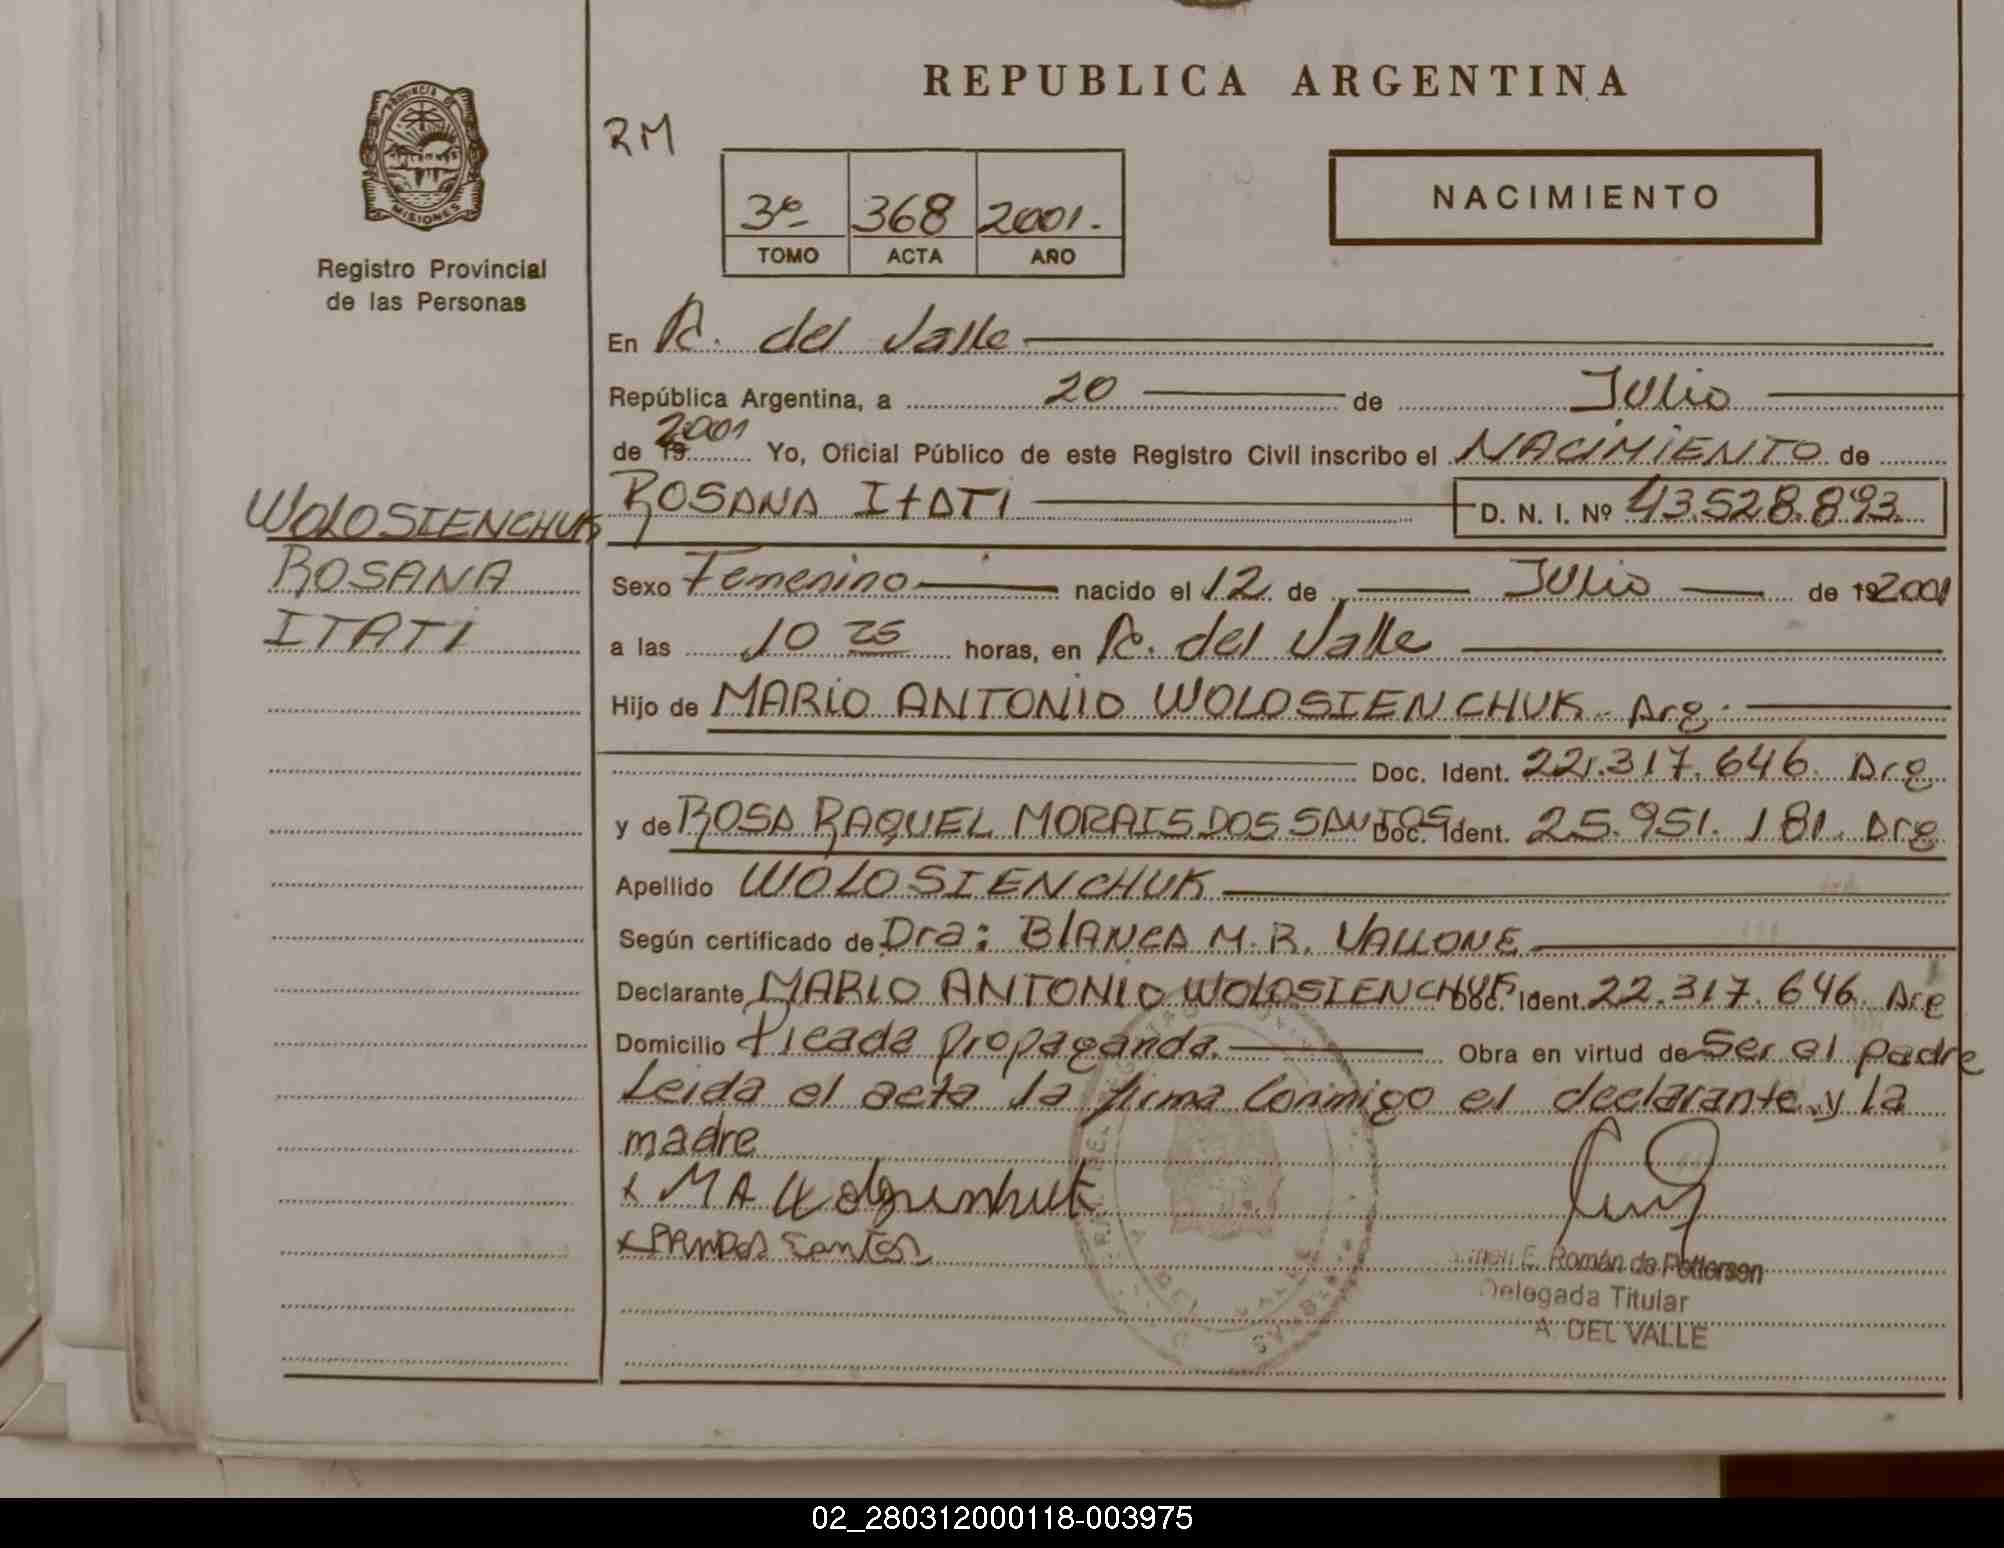 REPUBLICA ARGENTINA
PROVINCIA DE
MISIONES
Registro Provincial
de las Personas
RM
3º 368 2001.
TOMO ACTA AÑO
NACIMIENTO
En A. del Valle
República Argentina, a 20 de Julio
de 19 2001 Yo, Oficial Público de este Registro Civil inscribo el NACIMIENTO de
ROSANA ITATI D. N. I. Nº 43.528.893.
WOLOSIENCHUK
ROSANA
ITATI
Sexo Femenino nacido el 12 de Julio de 192001
a las 10 25 horas, en A. del Valle
Hijo de MARIO ANTONIO WOLOSIENCHUK - Arg.
Doc. Ident. 22.317.646. Arg
y de ROSA RAQUEL MORAIS DOS SANTOS Doc. Ident. 25.951.181. Arg
Apellido WOLOSIENCHUK
Según certificado de Dra: BLANCA M. R. VALLONE
Declarante MARIO ANTONIO WOLOSIENCHUK Doc. Ident. 22.317.646. Arg
Domicilio Picada Propaganda. Obra en virtud de Ser el padre
Leida el acta la firma Conmigo el declarante y la
madre
x M A
x Santos
E. Román de Pettersen
Delegada Titular
A. DEL VALLE
02_280312000118-003975